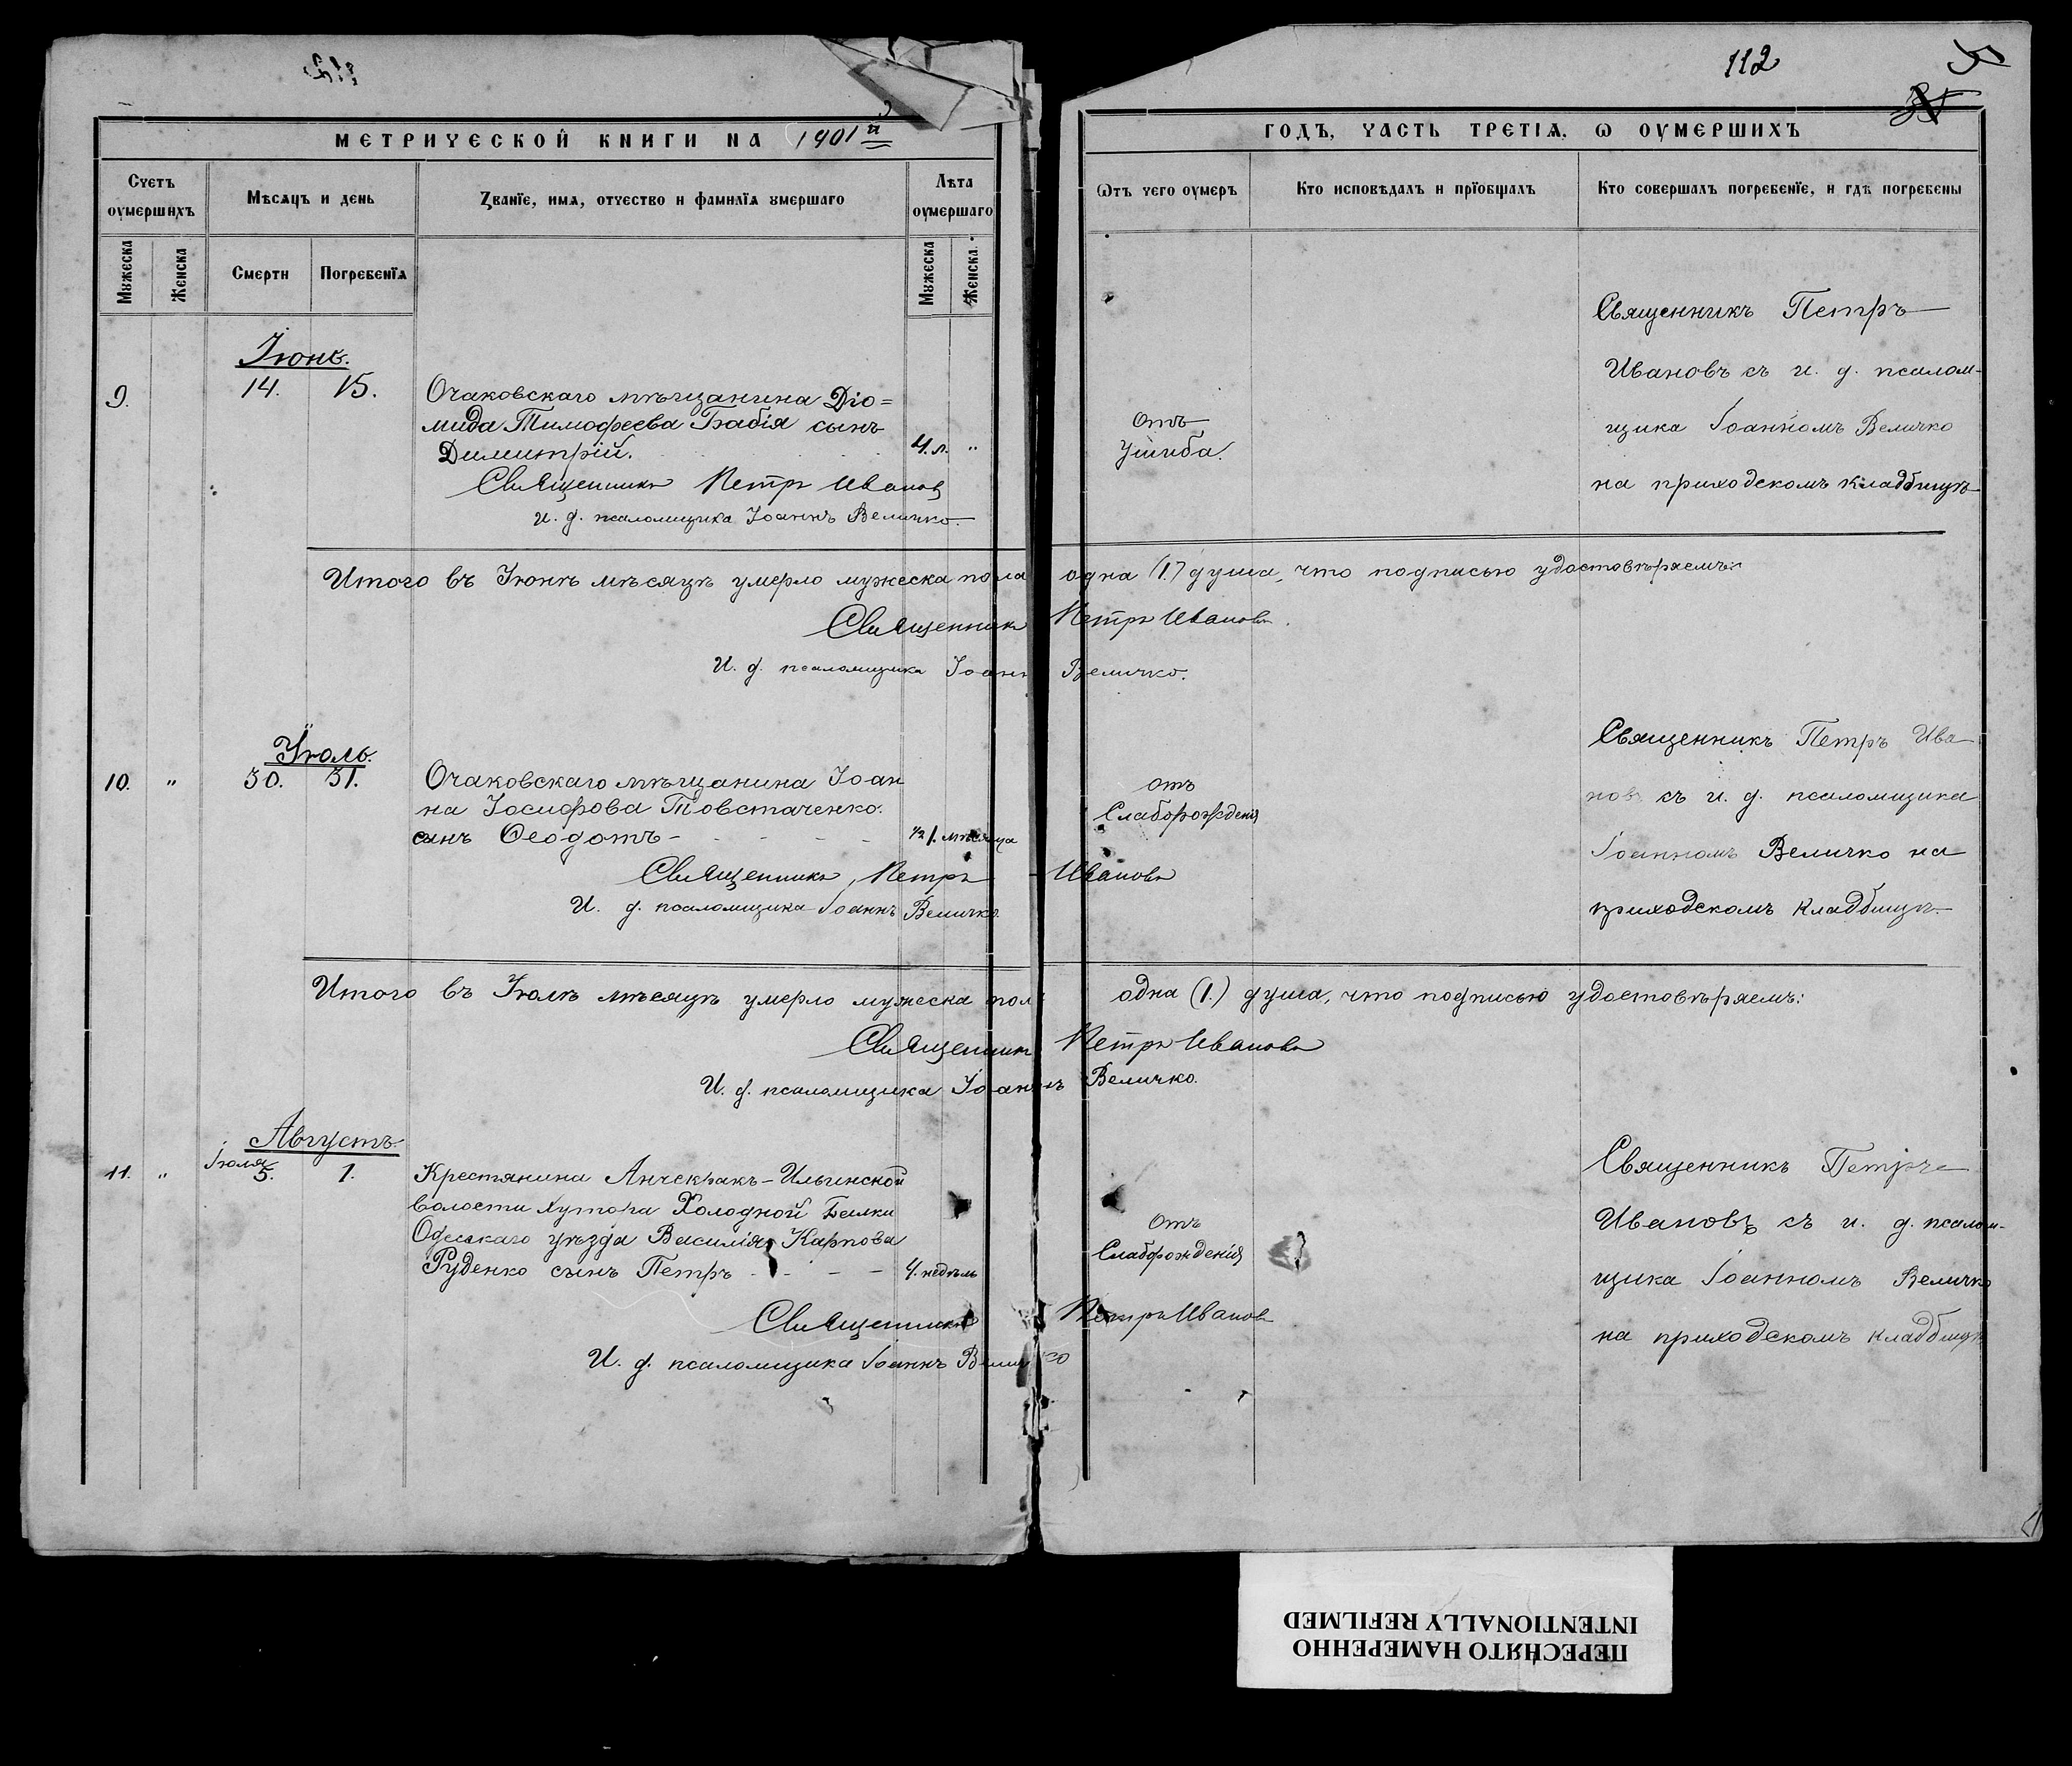 112
МЕТРИЧЕСКОЙ КНИГИ НА 1901й
ГОДЪ, ЧАСТЬ ТРЕТІЯ, Ѡ ОУМЕРШИХЪ
Счетъ оумершихъ
Мѣсяцъ и день
Званїе, имя, отчество и фамилїя умершаго
Лѣта оумершаго
Ѿтъ чего оумеръ
Кто исповѣдалъ и прїобщалъ
Кто совершалъ погребенїе, и гдѣ погребены
Мужеска
Женска
Смерти
Погребенїя
Мужеска
Женска.
Іюнь.
9. 14. 15.
Очаковскаго мѣщанина Діо=
мида Тимофеева Бабія сынъ
Димитрій. 4. л. "
Священникъ Петръ Иванов
И. д. псаломщика Іоаннъ Величко.
отъ
ушиба.
Священникъ Петръ
Ивановъ съ и. д. псалом-
щика Іоанномъ Величко
на приходскомъ кладбищѣ
Итого въ Іюнѣ мѣсяцѣ умерло мужеска пола одна (1.) душа, что подписью удостовѣряемъ:
Священникъ Петръ Ивановъ.
И. д. псаломщика Іоаннъ Величко.
Іюль.
10. " 30. 31.
Очаковскаго мѣщанина Іоан
на Іосифова Товстаченко.
сынъ Ѳеодотъ - - - - 1. мѣсяца
Священникъ Петръ Ивановъ
И. д. псаломщика Іоаннъ Величко.
отъ
Слаборожденія
Священникъ Петръ Ива
новъ съ и. д. псаломщика
Іоанномъ Величко на
приходскомъ кладбищѣ.
Итого въ Іюлѣ мѣсяцѣ умерло мужеска пол одна (1.) душа, что подписью удостовѣряемъ:
Священникъ Петръ Ивановъ
И. д. псаломщика Іоаннъ Величко.
Августъ.
11. " Іюля 5. 1.
Крестянина Анчекракъ-Ильинской
волости хутора Холодной Балки
Одесскаго уѣзда Василія Карпова
Руденко сынъ Петръ - - - - 4. недѣль
Священникъ Петръ Ивановъ
И. д. псаломщика Іоаннъ Величко
Отъ
Слаброжденія
Священникъ Петръ
Ивановъ съ и. д. псалом-
щика Іоанномъ Величко
на приходскомъ кладбищѣ
ПЕРЕСНЯТО НАМЕРЕННО
INTENTIONALLY REFILMED